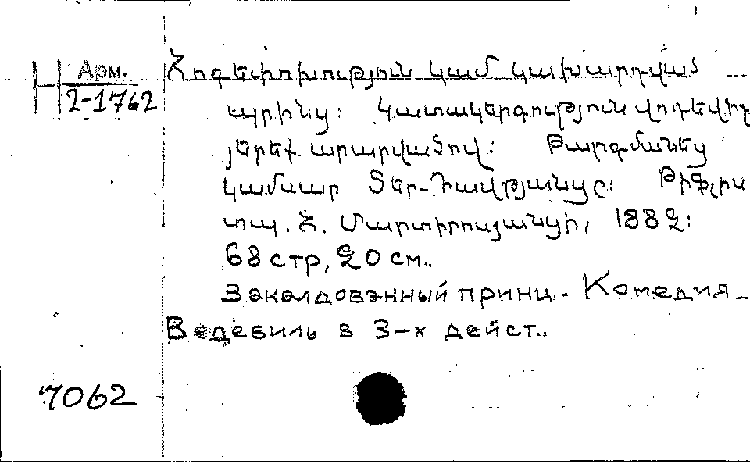 Հոգեփոխություն կամ կախարդված
Арм.
2-1762
պրինց: Կատակերգություն վոդեվիլ
յերեք արարվածով: Թարգմանեց
կամսար Տեր-Դավթյանցը: Թիֆլիս
տպ. Հ. Մարտիրոսյանցի, 1882:
68 стр, 20 см.
Заколдованный принц. Комедия-
Водевиль в 3-х дейст.
7062